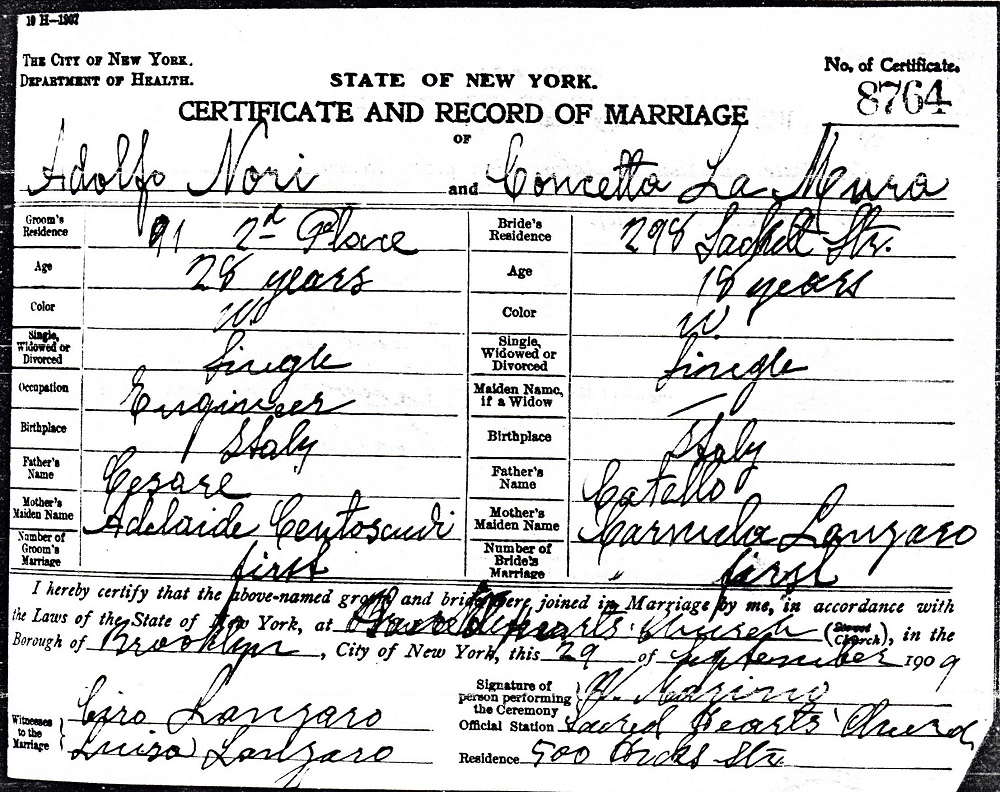 10 H—1907
THE CITY OF NEW YORK.
DEPARTMENT OF HEALTH.
STATE OF NEW YORK.
No. of Certificate.
8764
CERTIFICATE AND RECORD OF MARRIAGE
OF
Adolfo Nori and Concetta La Mura
Groom's Residence 91 2d Place
Bride's Residence 298 Sackett Str.
Age 28 years
Age 18 years
Color W.
Color W.
Single, Widowed or Divorced Single
Single, Widowed or Divorced Single
Occupation Engineer
Maiden Name, if a Widow —
Birthplace Italy
Birthplace Italy
Father's Name Cesare
Father's Name Catello
Mother's Maiden Name Adelaide
Mother's Maiden Name Carmela Lanzaro
Number of Groom's Marriage first
Number of Bride's Marriage first
I hereby certify that the above-named groom and bride were joined in Marriage by me, in accordance with
the Laws of the State of New York, at Sacred Hearts' Church (Street Church), in the
Borough of Brooklyn, City of New York, this 29 of September 1909
Witnesses to the Marriage
Ciro Lanzaro
Luisa Lanzaro
Signature of person performing the Ceremony
Official Station Sacred Hearts' Church
Residence 500 Hicks Str.